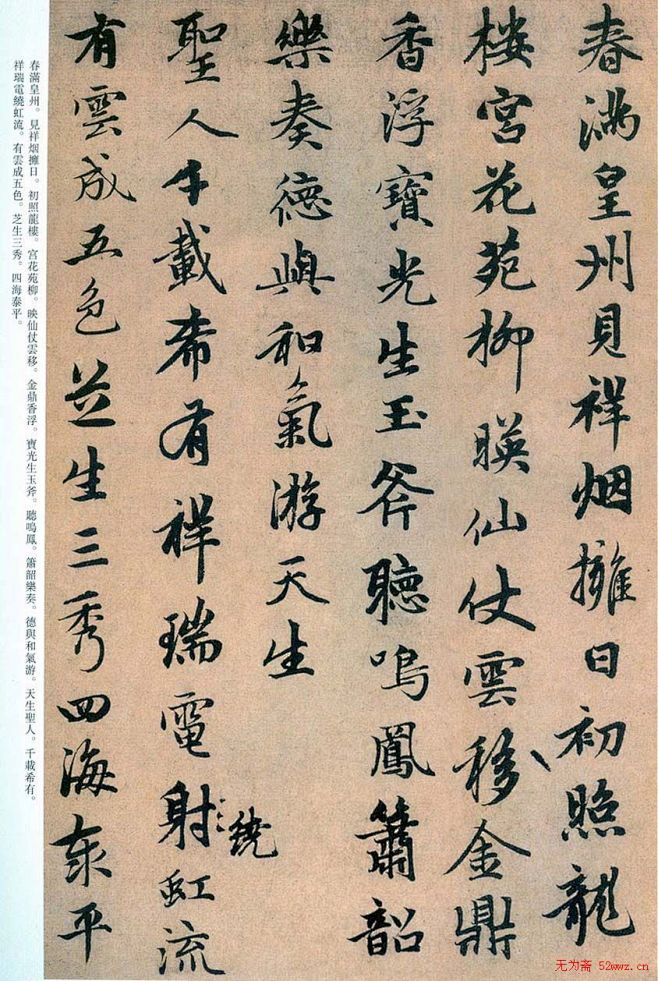 春滿皇州見祥烟擁日初照龍
楼宮花苑柳暎仙仗雲移金鼎
香浮寶光生玉斧聴嗚鳳簫韶
樂奏德與和氣游天生
聖人千載希有祥瑞電射虹流
繞
有雲成五色芝生三秀四海泰平
春滿皇州。見祥烟擁日。初照龍樓。宮花苑柳。映仙仗雲移。金鼎香浮。寶光生玉斧。聽鳴鳳。簫韶樂奏。德與和氣游。天生聖人。千載希有。
祥瑞電繞虹流。有雲成五色。芝生三秀。四海泰平。
无为斋 52wwz.cn